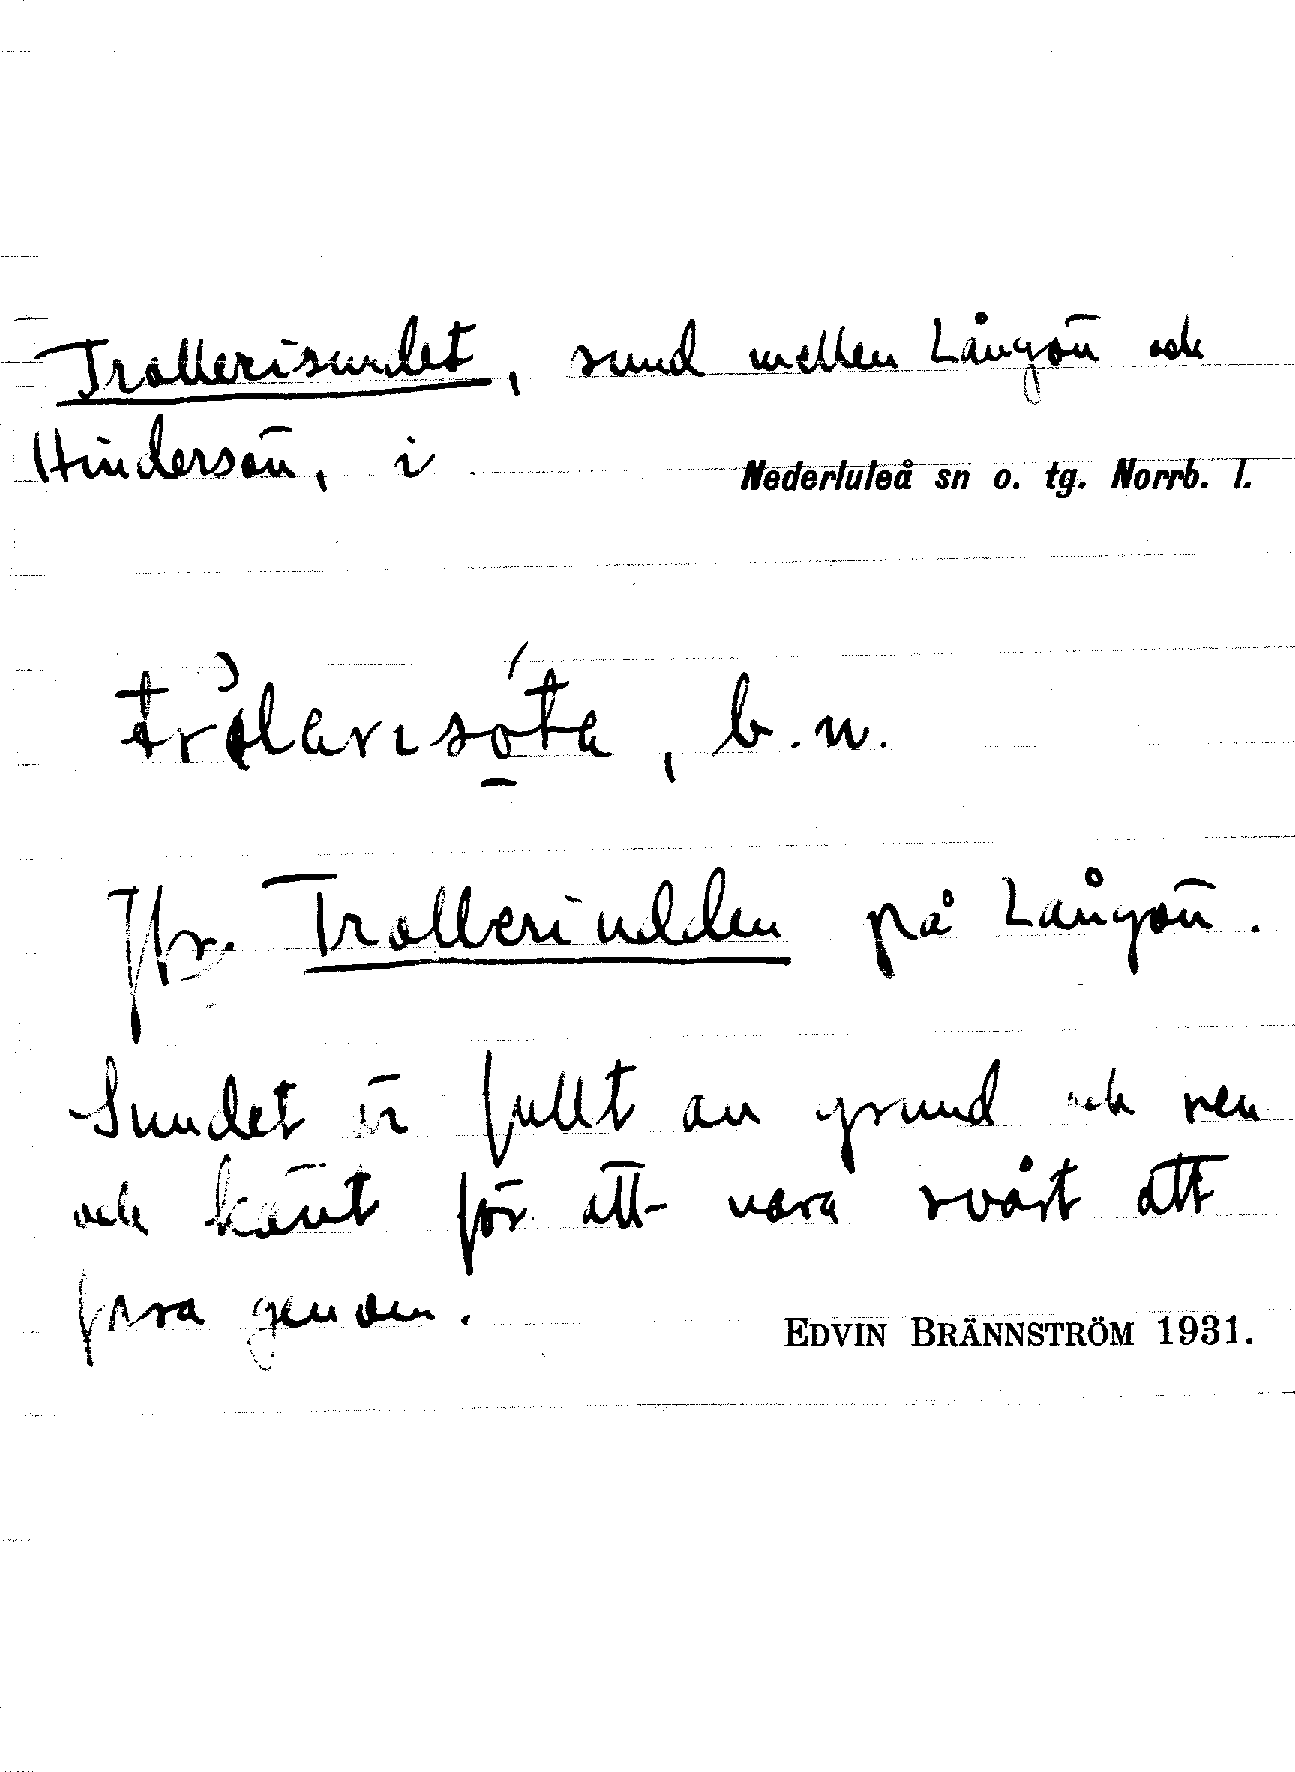 Trollerisundet, sund mellan Långön och
Hindersön, i Nederluleå sn o. tg. Norrb. l.
trålarısóta, b.n.
Jfr. Trolleriudden på Långön.
Sundet är fullt av grund och rev
och känt för att vara svårt att
fara genom.
EDVIN BRÄNNSTRÖM 1931.